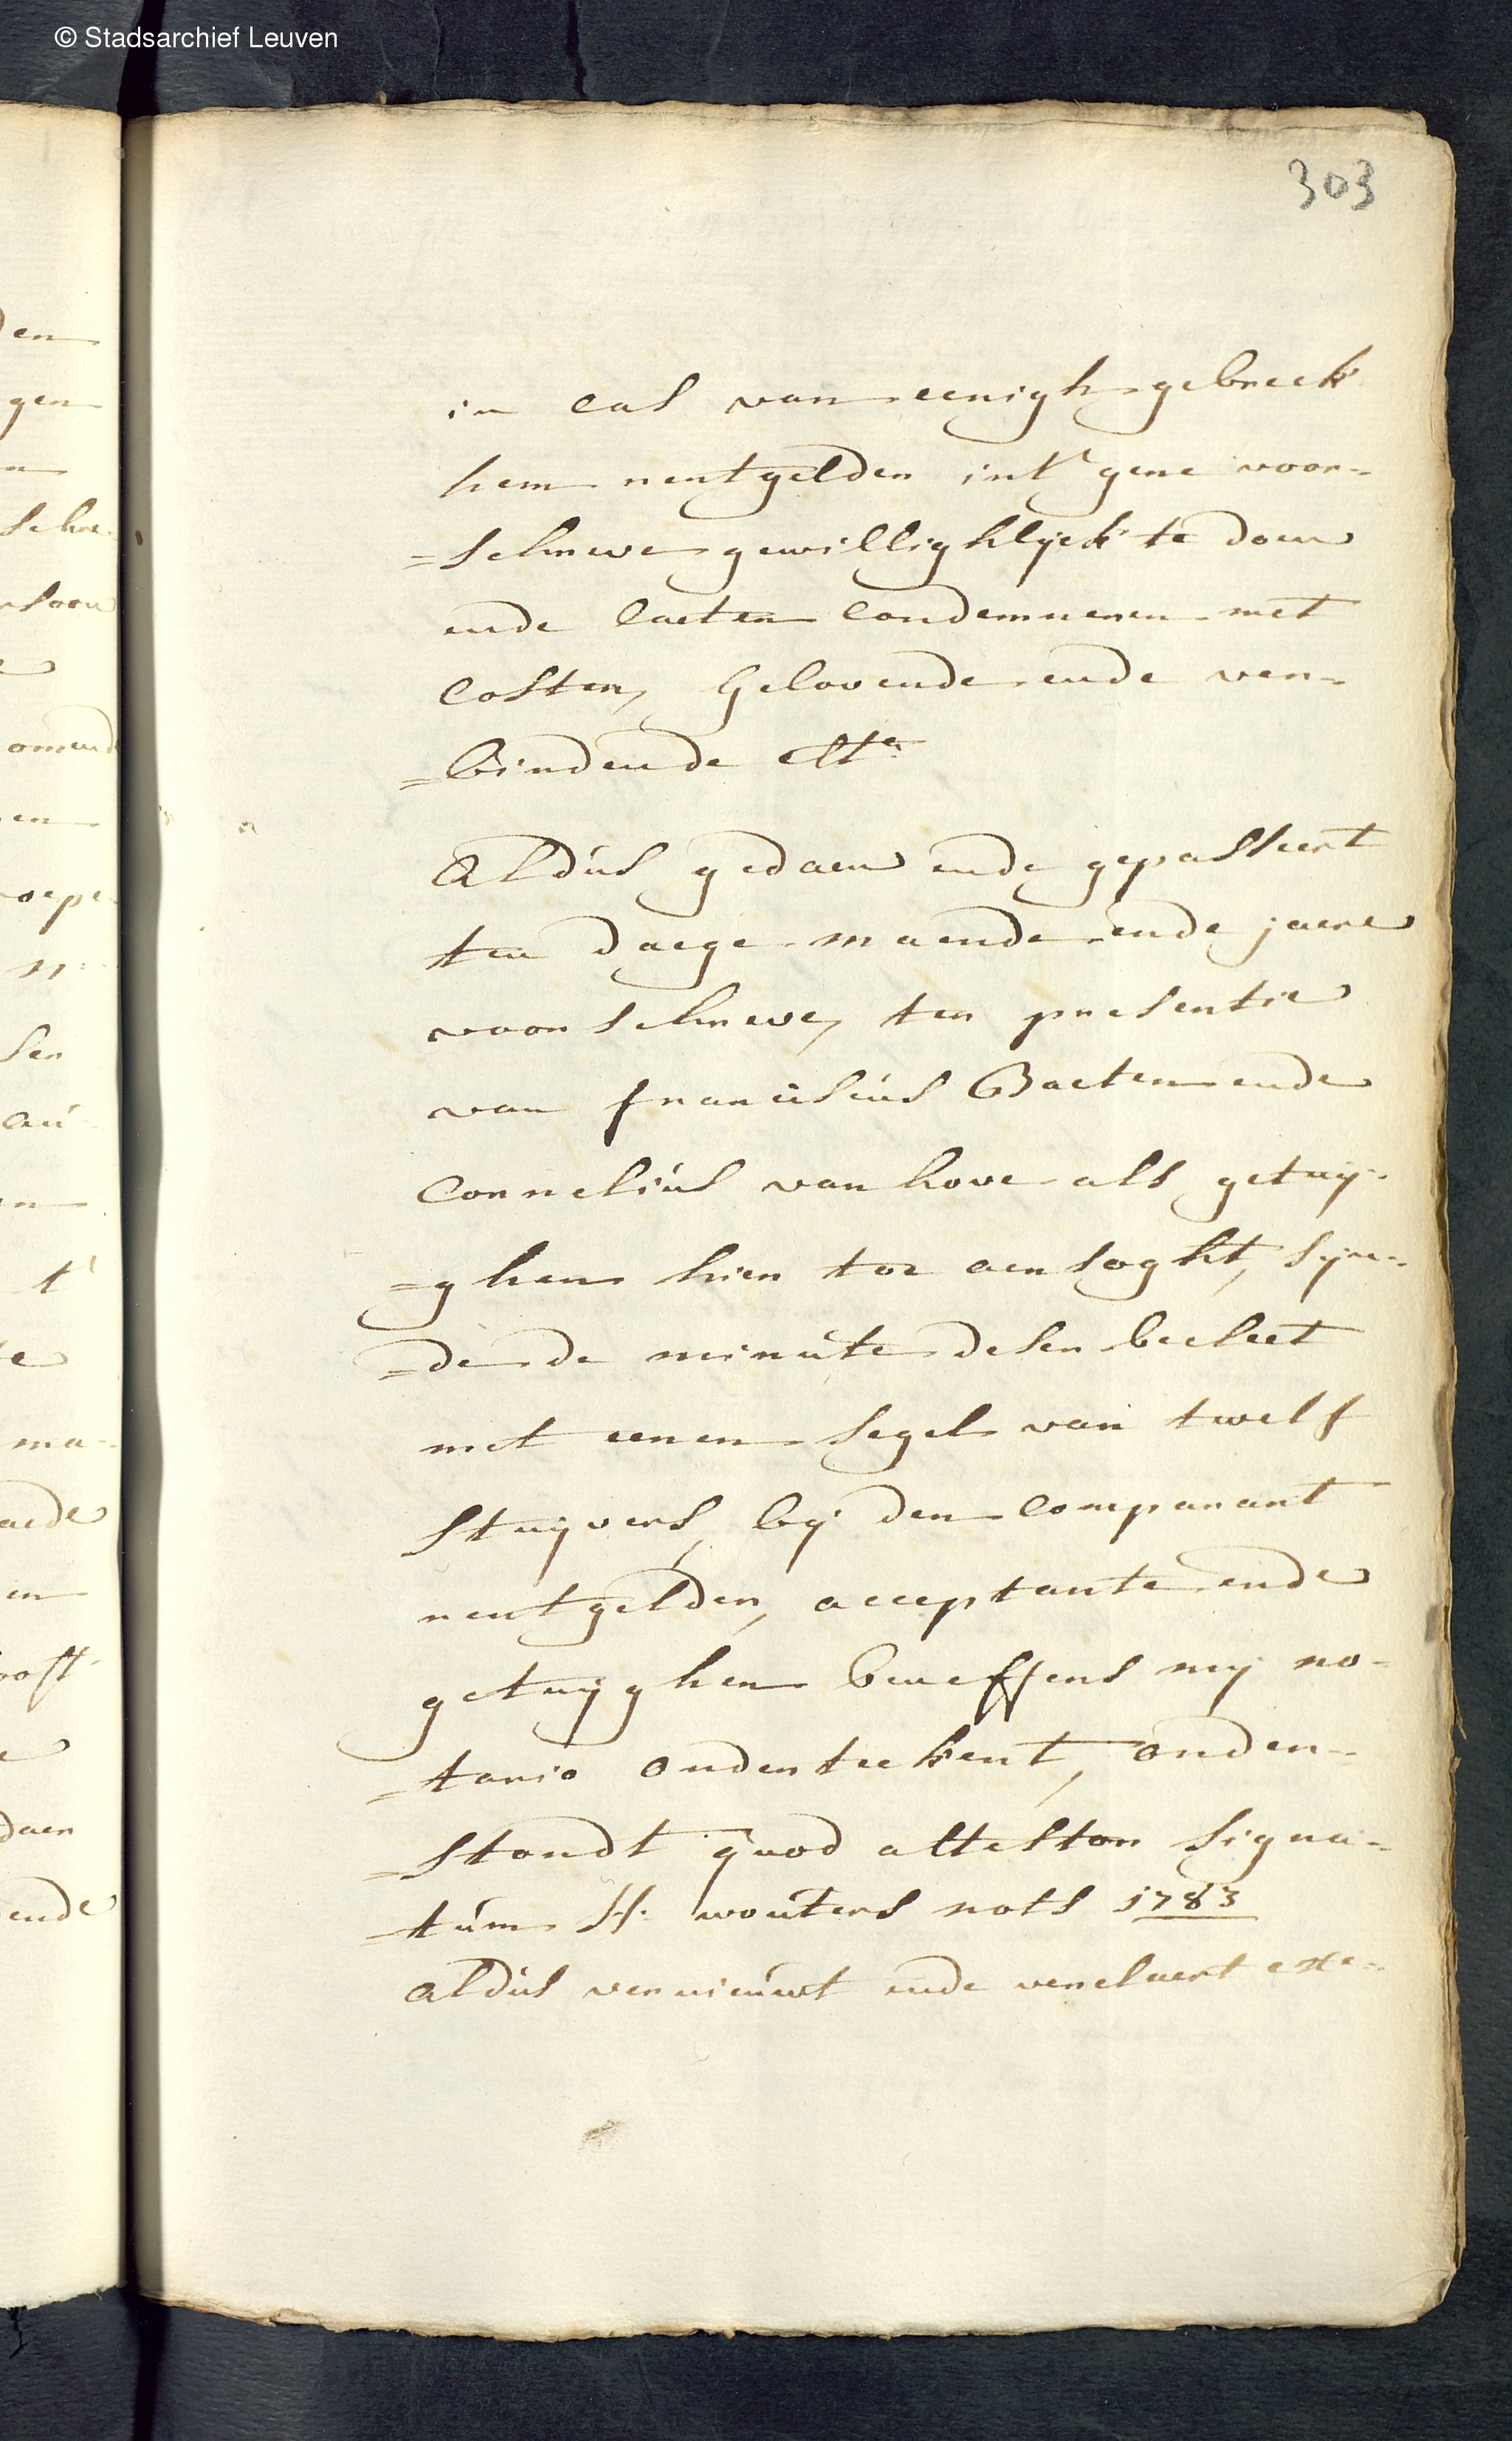 © Stadsarchief Leuven
303
in cas van eenigh gebreck
hem rentgelden int' gene voor-
=schreve gewillighlijck te doen
ende laeten condemneren met
costen, Gelovende ende ver-
=bindende etta
Aldús gedaen ende gepasseert
ten daege maende ende jaere
voorschreve, ter presentie
van franciscús Baeten ende
Corneliús van hove als getuij-
=ghen hier toe aensoght, sijn-
=de de minúte deser becleet
met eenen segel van twelf
stuijvers, bij den comparant
rentgelder, acceptante ende
getuijghen beneffens mij no-
=taris onderteekent, onder-
=stondt qúod attestor signa-
=túm H: woúters nots 1783
Aldús vernieúwt ende verclaert exe-
den
gen
schre
ende